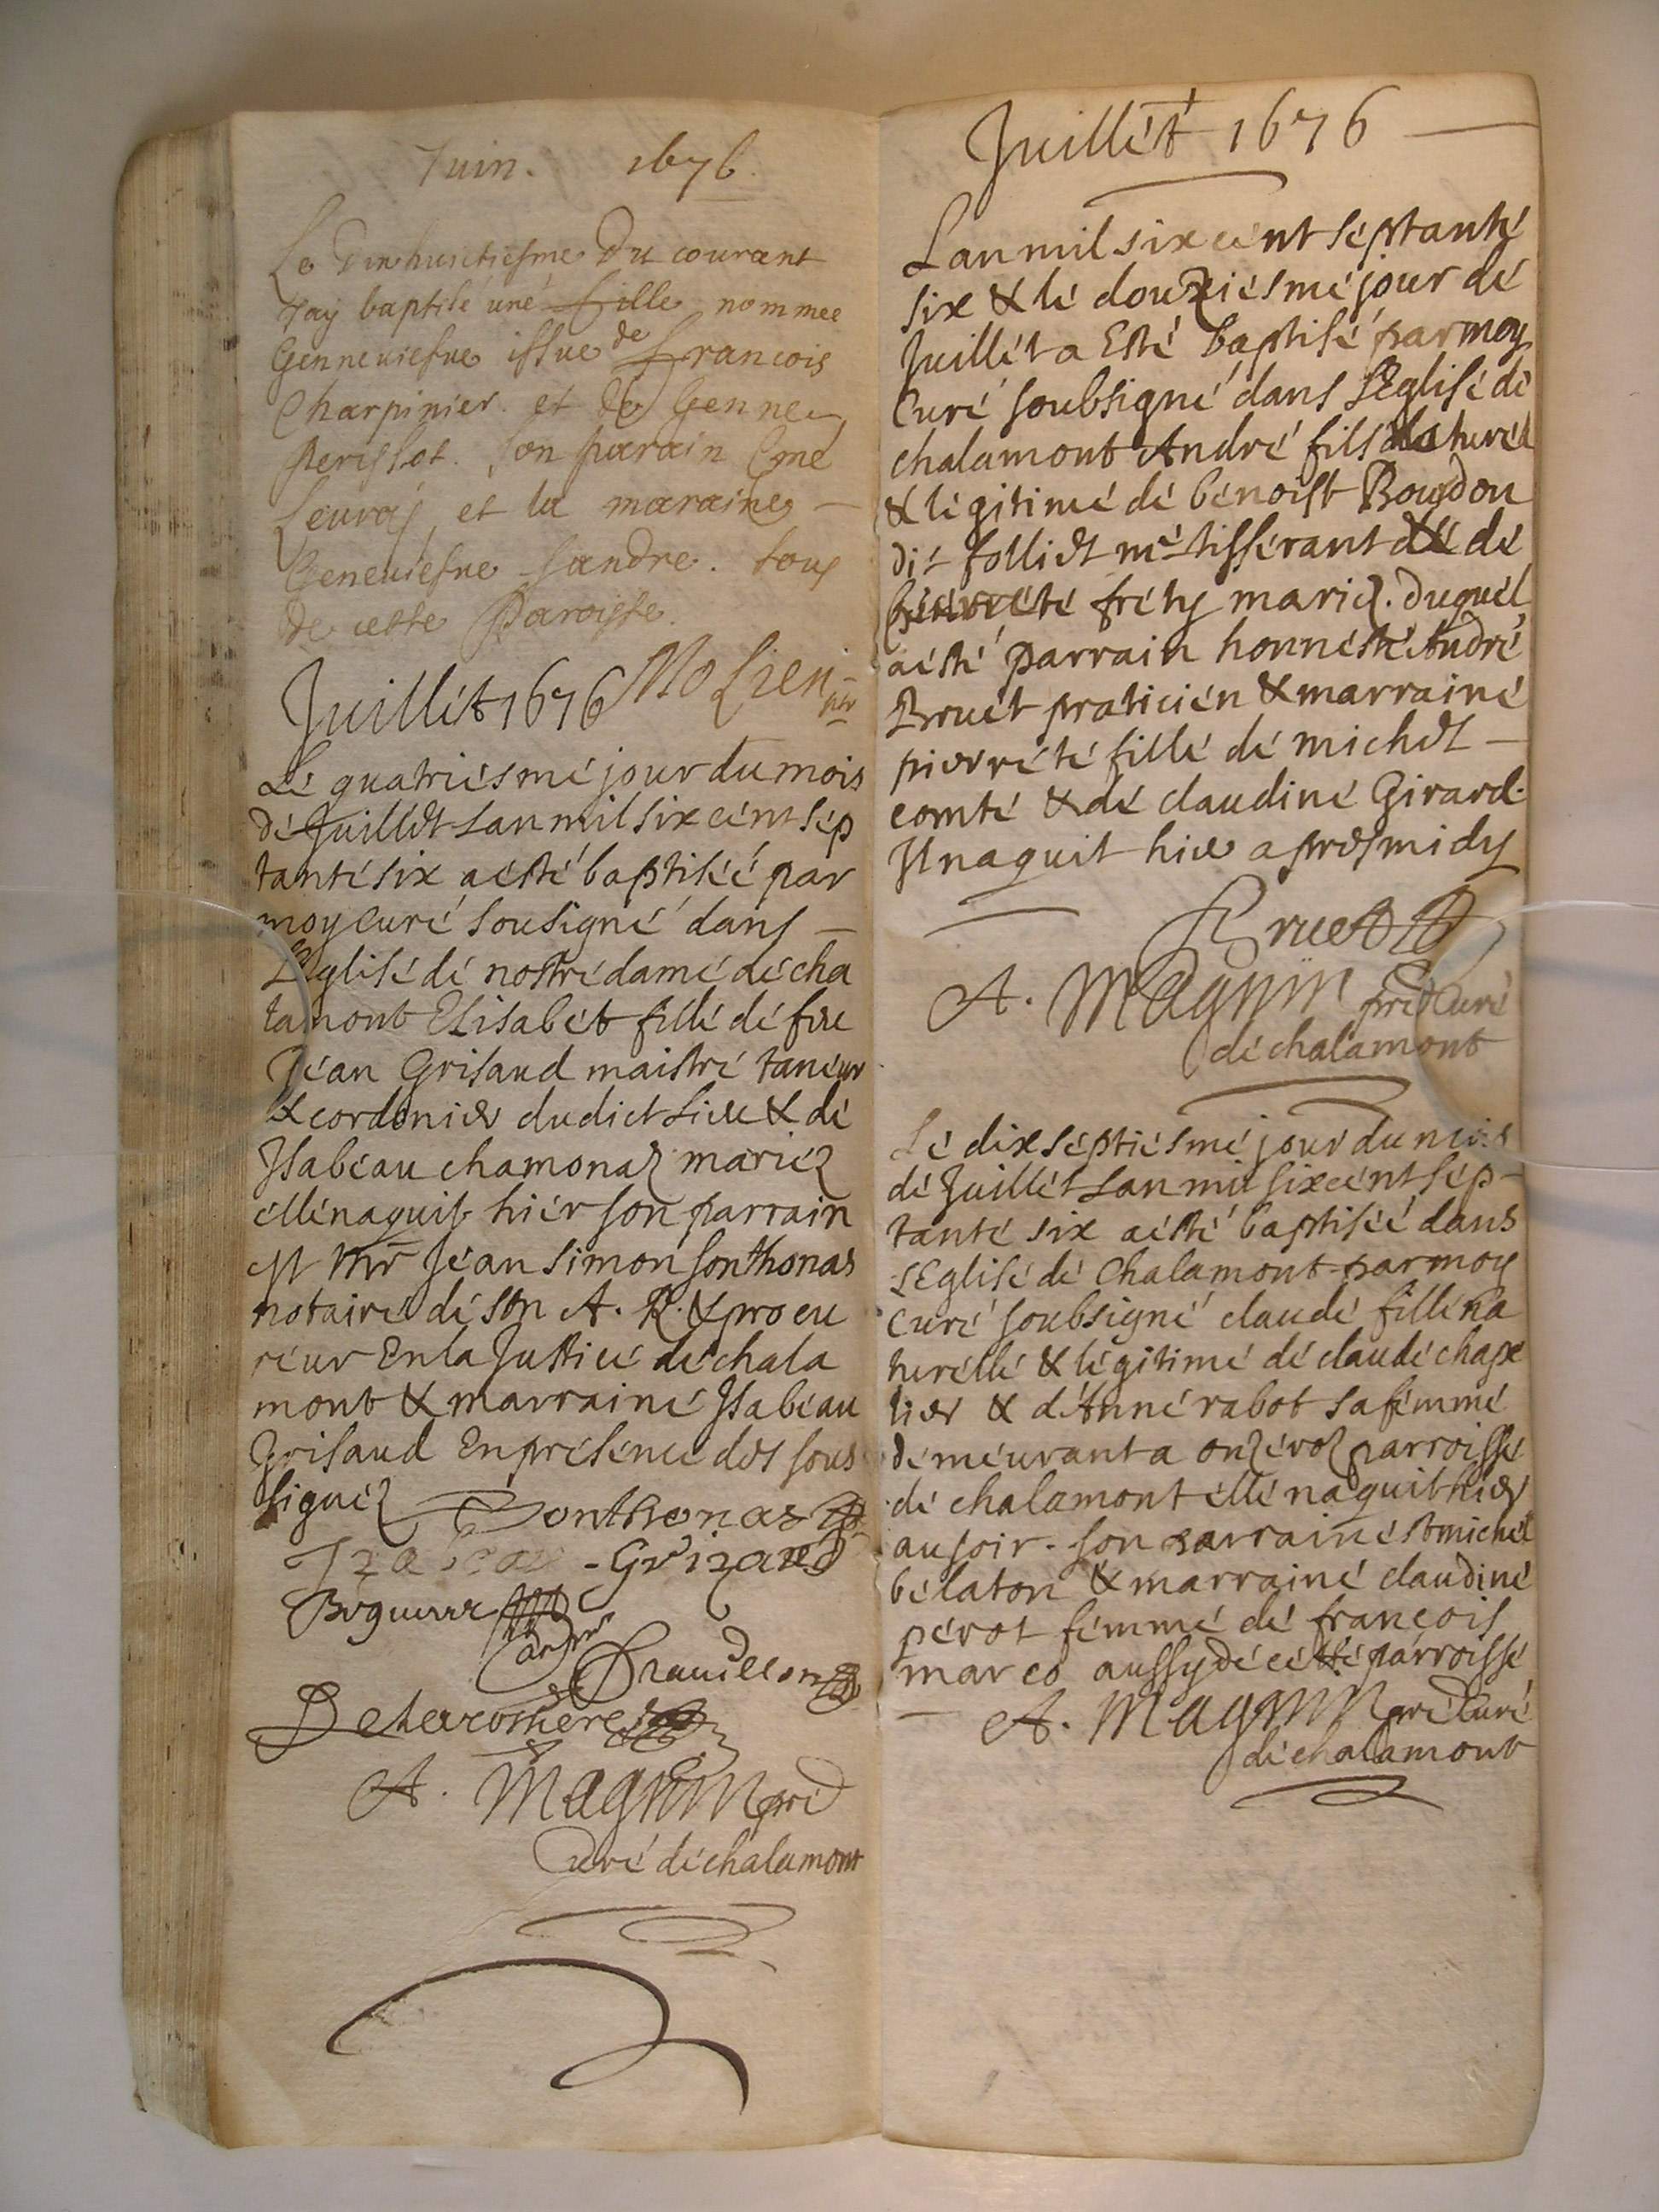 Juin. 1676.
Le vinhuictiesme Du courant
Jay baptisé une fille nommee
Genneuiefue issue de francois
Charpinier. et de Genne
perissot. son parain
et la maraine
Geneuiefue sandre. tous
de cette Paroisse.
Juillét 1676
Lé quatriésmé jour du mois
dé Juillét Lan mil six cént sép
tanté six aésté baptiséé par
moy curé sousigné dans
LEglisé dé nostré damé dé cha
lamont Elisabét fillé dé feu
Jéan Grisaud maistré tanéur
& cordonier dudict Lieu & dé
Isabéau chamonaz mariéz
éllé naquit hiér son parrain
est Mr Jéan simon sonthonas
notairé dé son A. R. & procu
réur En la Justicé dé chala
mont & marrainé Isabéau
Grisaud En présénce des sous
signéz Sonthonas
Izabeau Grizaud
Delacrosthere
A. Magnin pré
Curé dé chalamont
Juillét 1676
Lan mil six cént séptanté
six & lé douziésmé jour dé
Juillét a Esté baptisé par moy
Curé soubsigné dans LEglisé dé
chalamont André fils naturél
& légitimé dé bénoist Bourdon
dit folliet mé tissérant & dé
fréty mariéz. duquél
aésté parrain honnésté André
Bruét praticién & marrainé
piérrété fillé dé michél
comté & dé claudiné Girard.
Il naquit hier apres midy
Bruet
A. Magnin pré Curé
dé chalamont
Lé dix séptiésmé jour du mois
dé Juillét Lan mil six cént sép
tanté six aésté baptiséé dans
LEglisé dé Chalamont par moy
Curé soubsigné claudé fillé na
turéllé & légitimé dé claudé chape
lier & d'Anné rabot sa fémmé
déméurant a onzéroz parroissé
dé chalamont éllé naquit hier
au soir. son parrain ést michél
bélaton & marrainé claudiné
pérot fémmé dé françois
marco aussy dé cétté parroissé
A. Magnin pré Curé
dé chalamont